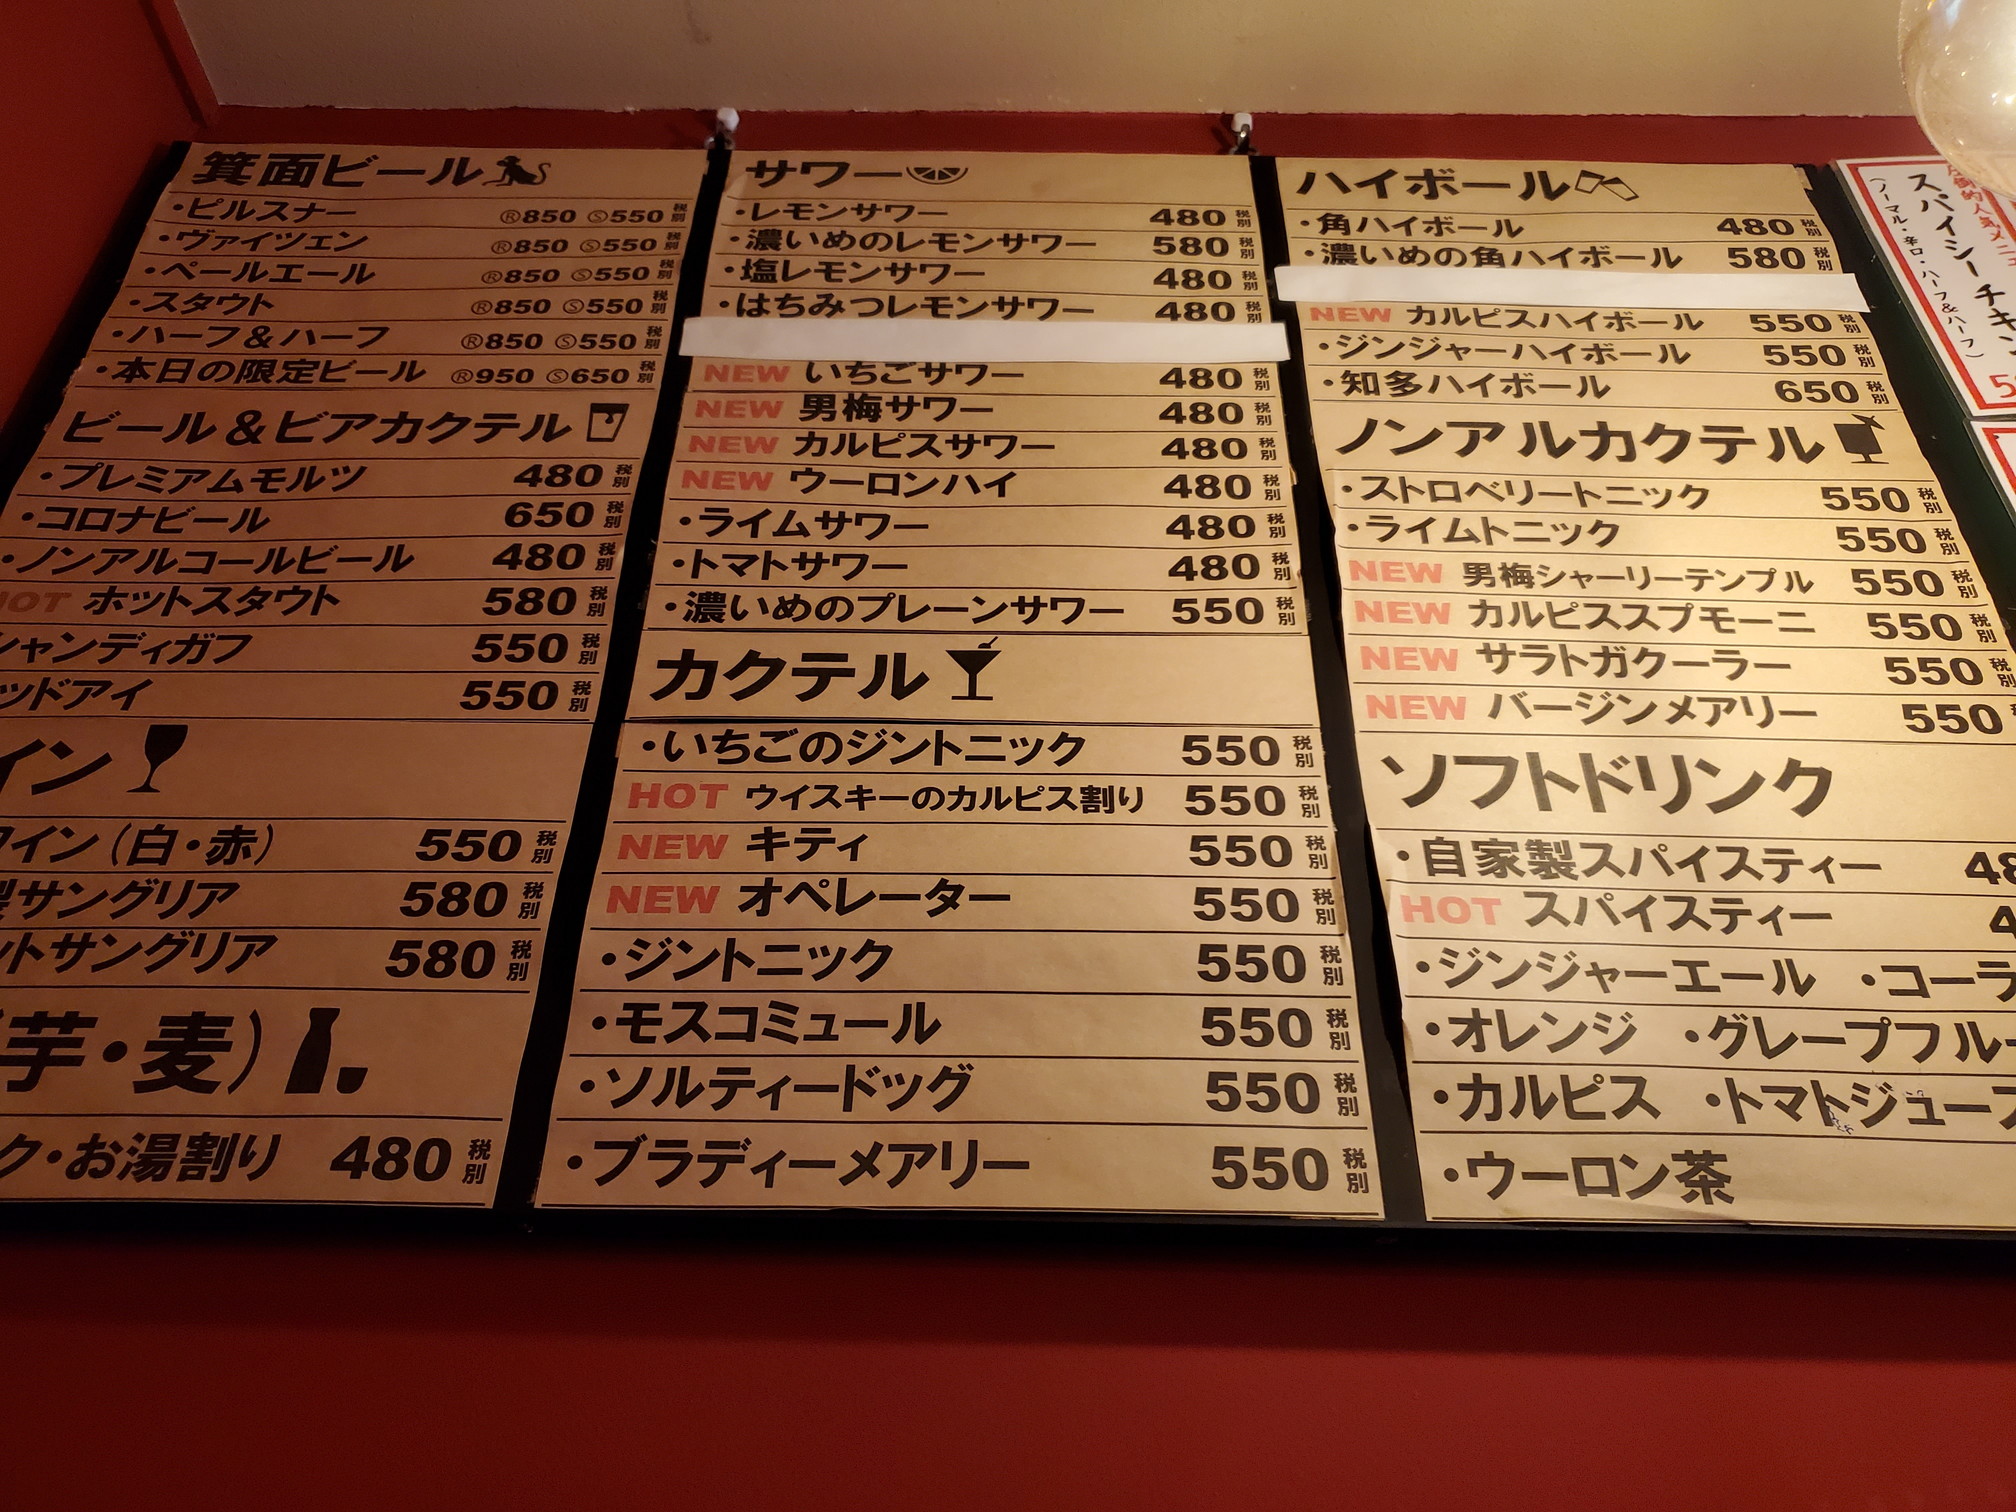 箕面ビール
・ピルスナー Ⓡ850 Ⓢ550 税別
・ヴァイツェン Ⓡ850 Ⓢ550 税別
・ペールエール Ⓡ850 Ⓢ550 税別
・スタウト Ⓡ850 Ⓢ550 税別
・ハーフ&ハーフ Ⓡ850 Ⓢ550 税別
・本日の限定ビール Ⓡ950 Ⓢ650 税別
ビール&ビアカクテル
・プレミアムモルツ 480 税別
・コロナビール 650 税別
・ノンアルコールビール 480 税別
HOT ホットスタウト 580 税別
シャンディガフ 550 税別
ッドアイ 550 税別
イン
ワイン(白・赤) 550 税別
製サングリア 580 税別
ットサングリア 580 税別
(芋・麦)
ク・お湯割り 480 税別
サワー
・レモンサワー 480 税別
・濃いめのレモンサワー 580 税別
・塩レモンサワー 480 税別
・はちみつレモンサワー 480 税別
NEW いちごサワー 480 税別
NEW 男梅サワー 480 税別
NEW カルピスサワー 480 税別
NEW ウーロンハイ 480 税別
・ライムサワー 480 税別
・トマトサワー 480 税別
・濃いめのプレーンサワー 550 税別
カクテル
・いちごのジントニック 550 税別
HOT ウイスキーのカルピス割り 550 税別
NEW キティ 550 税別
NEW オペレーター 550 税別
・ジントニック 550 税別
・モスコミュール 550 税別
・ソルティードッグ 550 税別
・ブラディーメアリー 550 税別
ハイボール
・角ハイボール 480 税別
・濃いめの角ハイボール 580 税別
NEW カルピスハイボール 550 税別
・ジンジャーハイボール 550 税別
・知多ハイボール 650 税別
ノンアルカクテル
・ストロベリートニック 550 税別
・ライムトニック 550 税別
NEW 男梅シャーリーテンプル 550 税別
NEW カルピススプモーニ 550 税別
NEW サラトガクーラー 550 税別
NEW バージンメアリー 550
ソフトドリンク
・自家製スパイスティー 48
HOT スパイスティー 4
・ジンジャーエール ・コーラ
・オレンジ ・グレープフルー
・カルピス ・トマトジュース
・ウーロン茶
スパイシーチキン
(ノーマル・辛口・ハーフ&ハーフ)